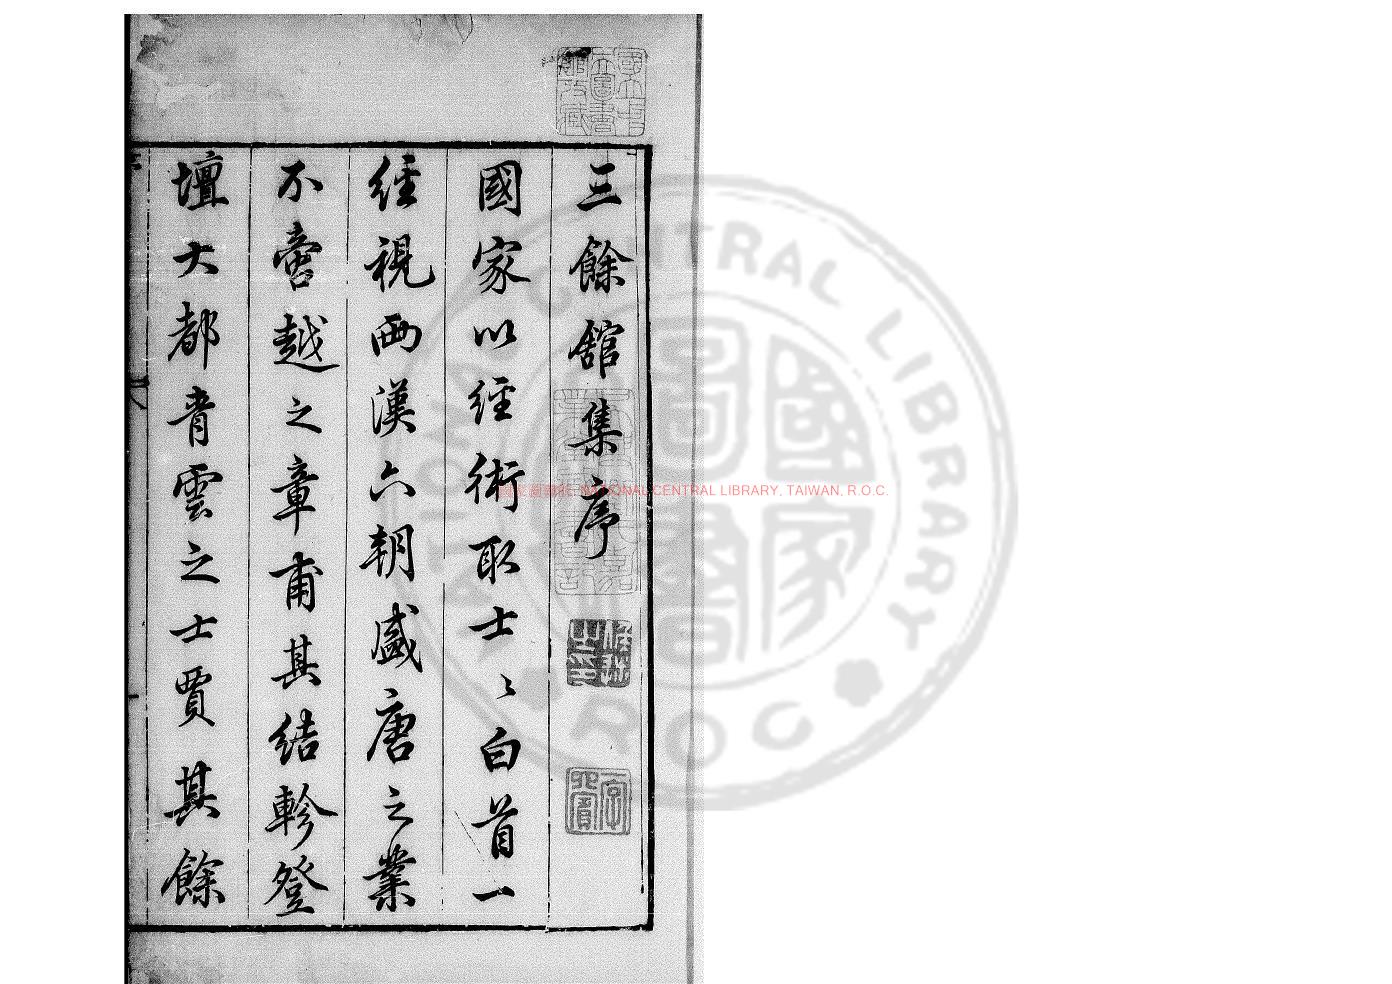 三餘舘集序
國家以經術取士〻白首一
經視西漢六朝盛唐之業
不啻越之章甫其結軫登
壇大都青雲之士賈其餘
國家圖書館 NATIONAL CENTRAL LIBRARY, TAIWAN, R.O.C.
NATIONAL CENTRAL LIBRARY
R.O.C
國家圖書